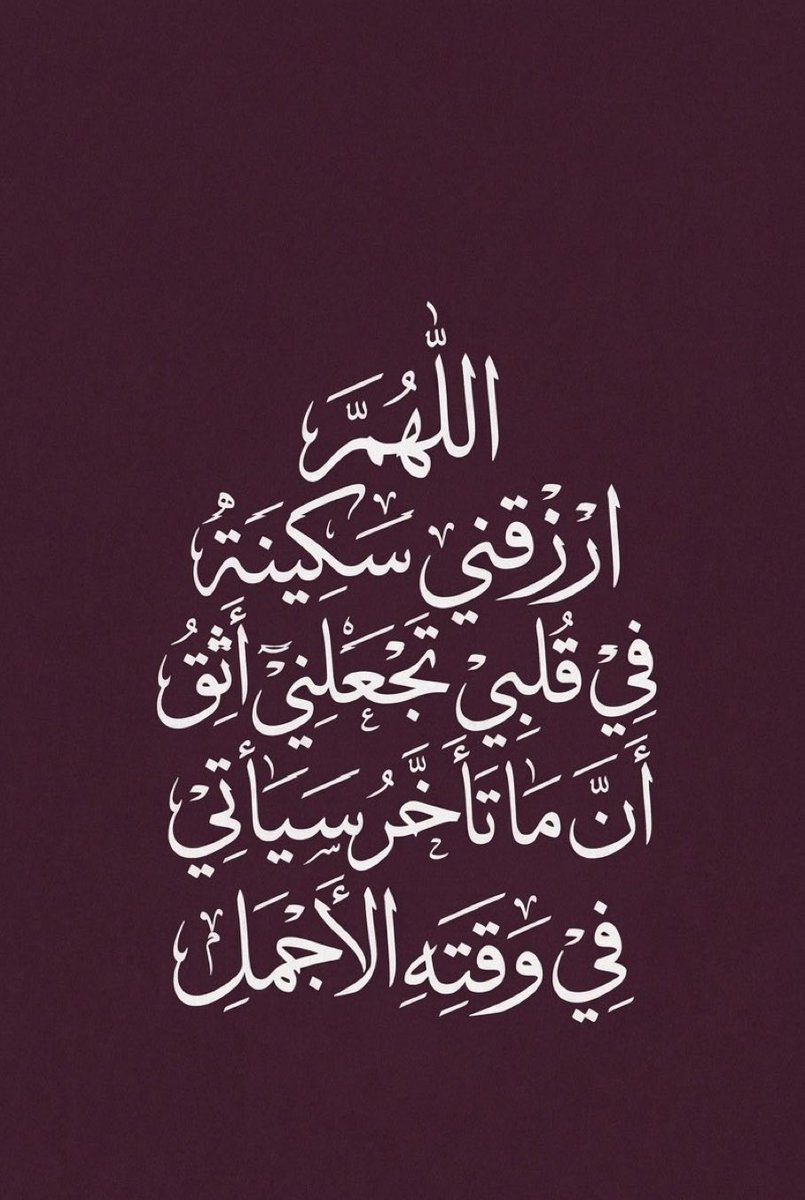 اللّٰهُمَّ
ارْزُقْني سَكِينَةُ
فِيْ قُلِبِيْ تَجْعَلِنِيْ أَثِقُ
أَنَّ مَا تَأَخَّرُ سَيَأتِيْ
فِيْ وَقتِهِ الأَجْمَلِ